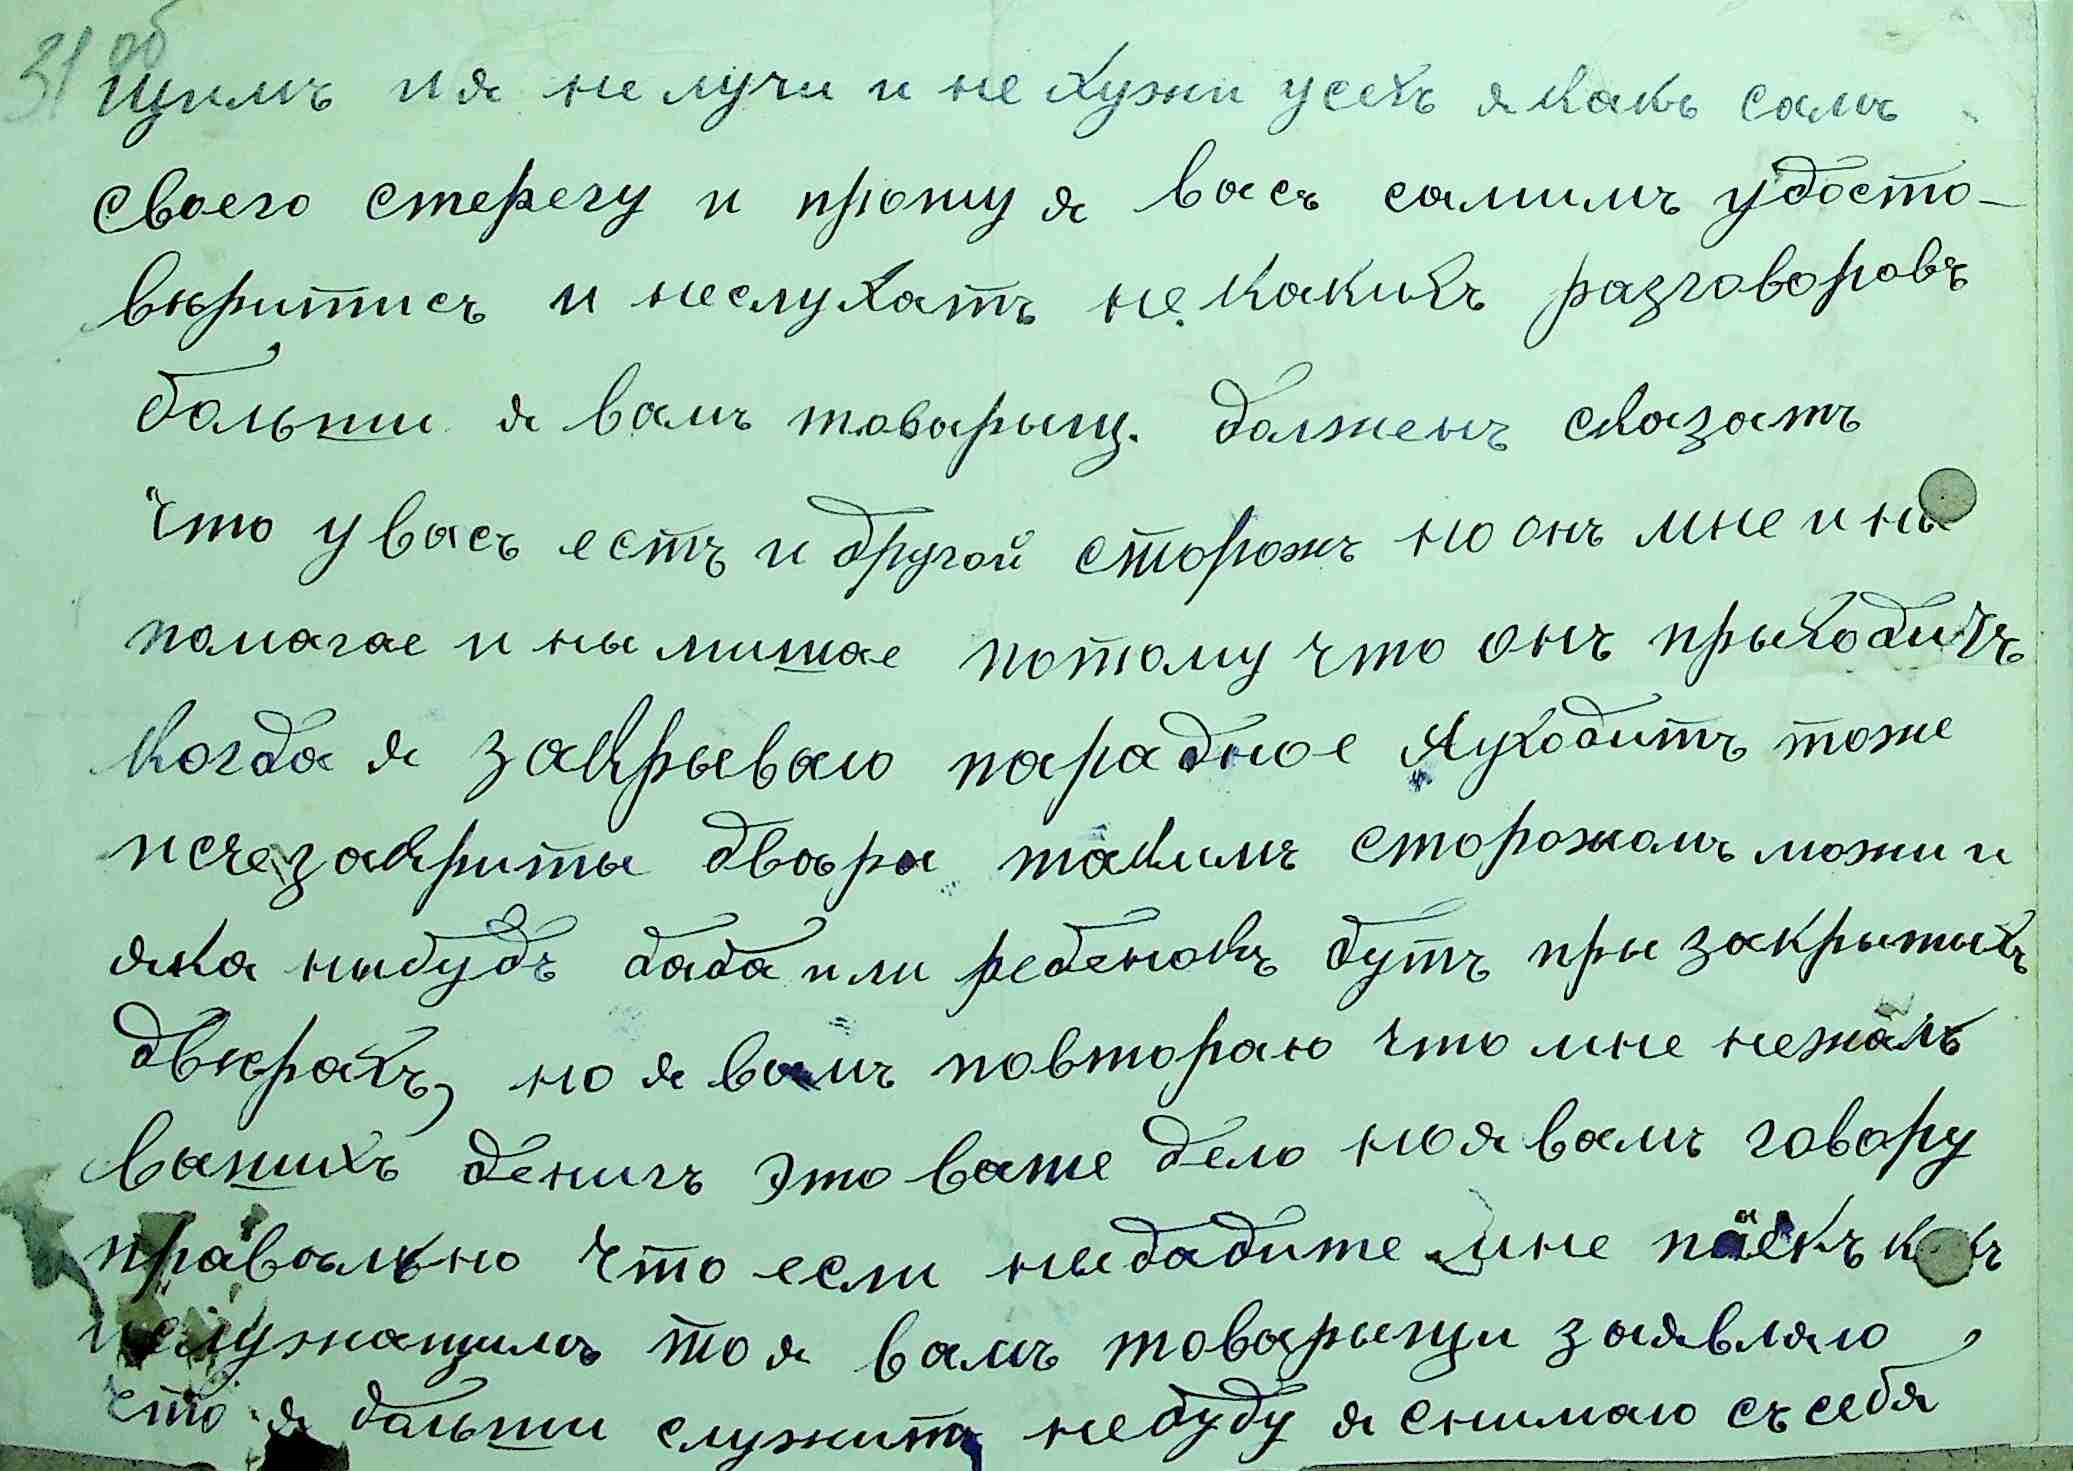 31 об
щимъ и я не лучи и не хужи усехъ я какъ самъ
своего стерегу и прошу я васъ самимъ удосто-
вкритисъ и неслухатъ не какихъ разговоровъ
больши я вамъ товарищ. долженъ сказатъ
что у васъ естъ и другой сторожъ но онъ мне и ны
помагае и ны мишае потому что онъ прыходить
когда я закрываю парадное яуходитъ тоже
закриты двара такимъ сторожомъ можи и
яка нибудъ баба или ребёнокъ бутъ пры закрытыхъ
двкрахъ, но я вамъ повтораю что мне нежаль
вашихъ дёнигъ это ваше дело но я вамъ говару
правально что если ныдадите мне паёкъ какъ
ислужащимъ то я вамъ товарыщи заявляю,
что я больши служитъ небуду я снимаю съ себя